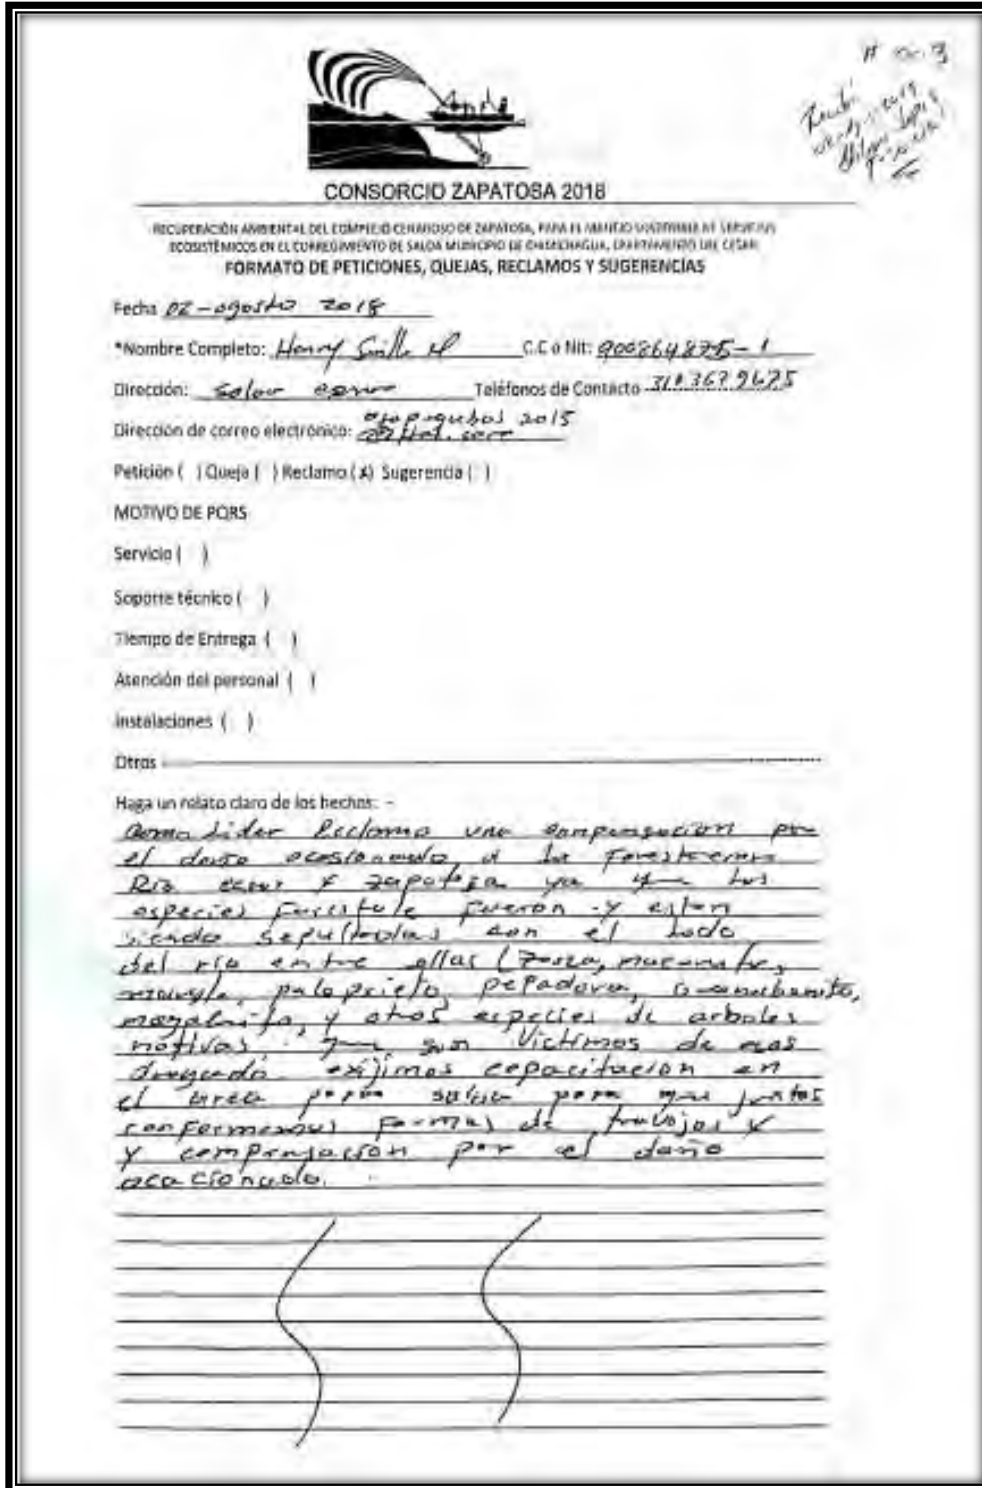 CONSORCIO ZAPATOSA 2018
RECUPERACIÓN AMBIENTAL DEL COMPLEJO CENAGOSO DE ZAPATOSA, PARA EL MANEJO SOSTENIBLE DE SERVICIOS
ECOSISTÉMICOS EN EL CORREGIMIENTO DE SALOA MUNICIPIO DE CHIMICHAGUA, DEPARTAMENTO DEL CESAR
FORMATO DE PETICIONES, QUEJAS, RECLAMOS Y SUGERENCIAS
Fecha 02 - agosto 2018
*Nombre Completo: Henry C.C o Nit: 900864875-1
Dirección: Saloa Teléfonos de Contacto 3103679675
2015
Dirección de correo electrónico:
Petición ( ) Queja ( ) Reclamo (x) Sugerencia ( )
MOTIVO DE PQRS
Servicio ( )
Soporte técnico ( )
Tiempo de Entrega ( )
Atención del personal ( )
Instalaciones ( )
Otros
Haga un relato claro de los hechos: -
Como Lider Reclamo una compensacion por
el daño ocasionado a la
Rio y zapatosa ya que las
especies fueron y estan
siendo sepultadas con el lodo
del río entre ellas (
mangle, palo prieto,
y otras especies de arboles
nativas. que son Victimas de
dragado exijimos capacitacion en
el area para que juntos
conformemos formas de trabajos y
y compensacion por el daño
acacionado.